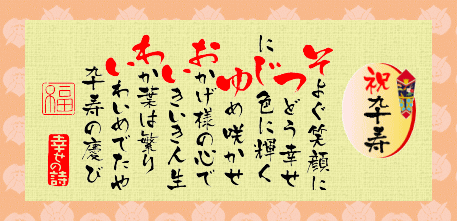 祝卆寿
そよぐ笑顔に
つどう幸せ
にじ色に輝く
ゆめ咲かせ
おかげ様の心で
いきいき人生
わか葉は繁り
いわいめでたや
卆寿の慶び
福
幸せの詩